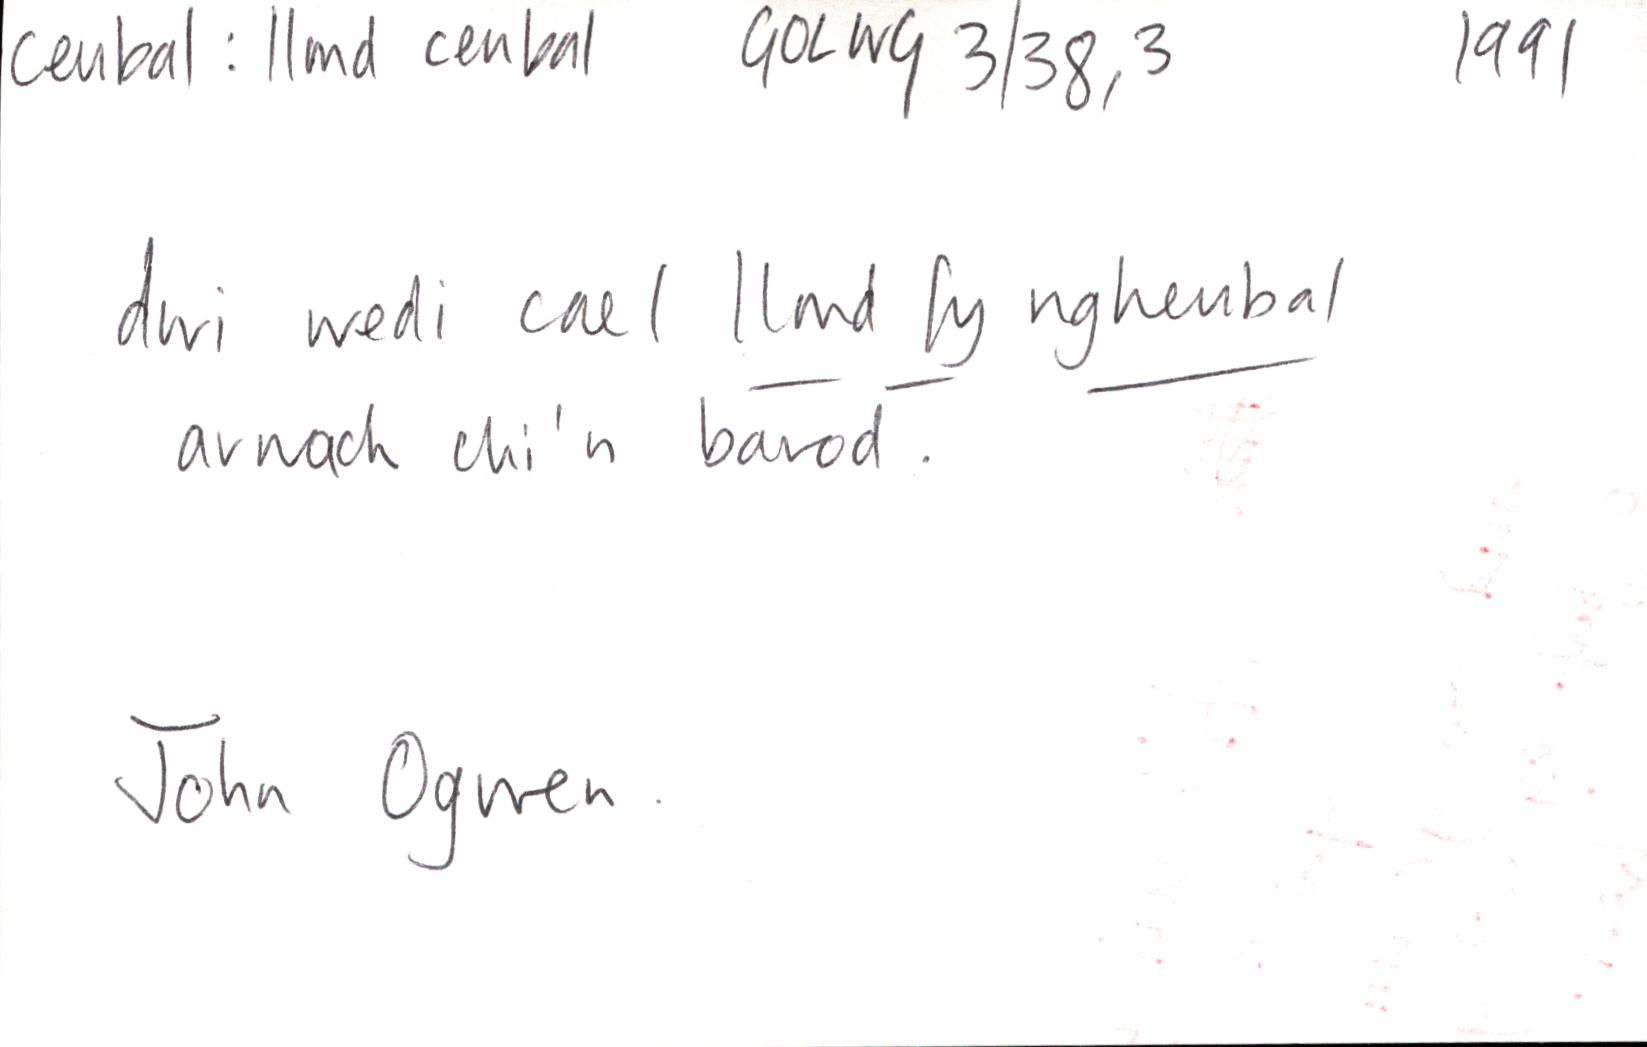 ceubal: llond ceubal GOLWG 3/38,3 1991
dwi wedi cael llond fy ngheubal
arnach chi'n barod.
John Ogwen.